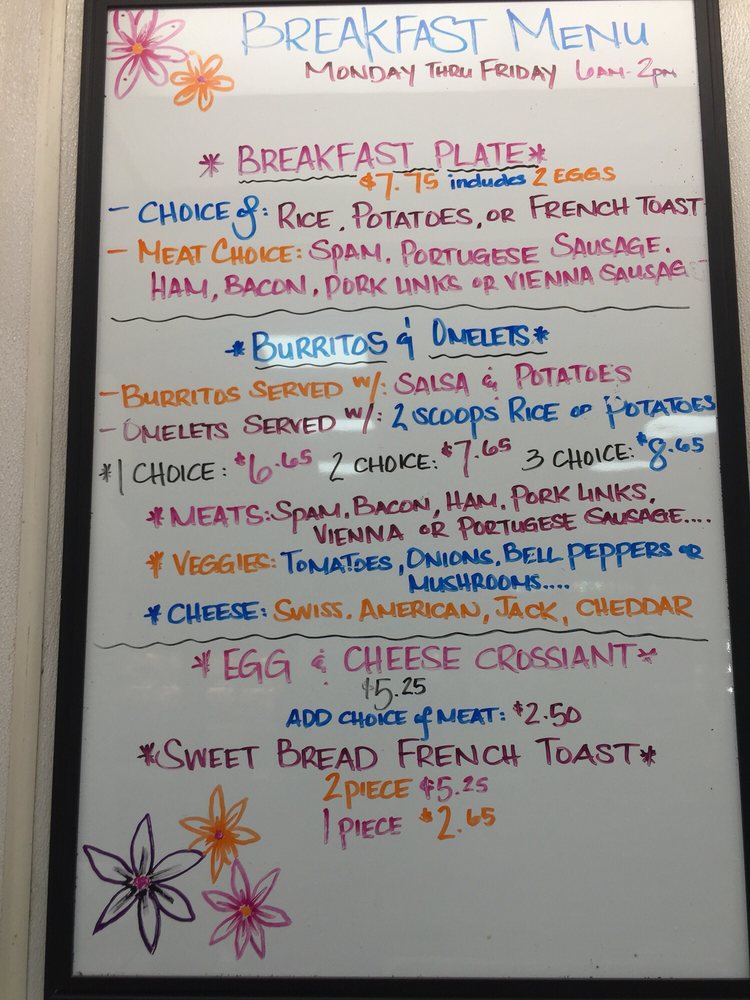 BREAKFAST MENU
MONDAY THRU FRIDAY 6AM-2PM
* BREAKFAST PLATE*
$7.75 includes 2 EGGS
- CHOICE of: RICE, POTATOES, OR FRENCH TOAST
- MEAT CHOICE: SPAM, PORTUGESE SAUSAGE.
HAM, BACON, PORK LINKS OR VIENNA SAUSAG
*BURRITOS & OMELETS*
- BURRITOS SERVED W/: SALSA & POTATOES
- OMELETS SERVED W/: 2 SCOOPS RICE OR POTATOES
*1 CHOICE: $6.65 2 CHOICE: $7.65 3 CHOICE: $8.65
*MEATS: SPAM, BACON, HAM, PORK LINKS,
VIENNA OR PORTUGESE SAUSAGE....
* VEGGIES: TOMATOES, ONIONS, BELL PEPPERS OR
MUSHROOMS....
* CHEESE: SWISS, AMERICAN, JACK, CHEDDAR
* EGG & CHEESE CROSSIANT*
$5.25
ADD CHOICE of MEAT: $2.50
*SWEET BREAD FRENCH TOAST*
2 PIECE $5.25
1 PIECE $2.65